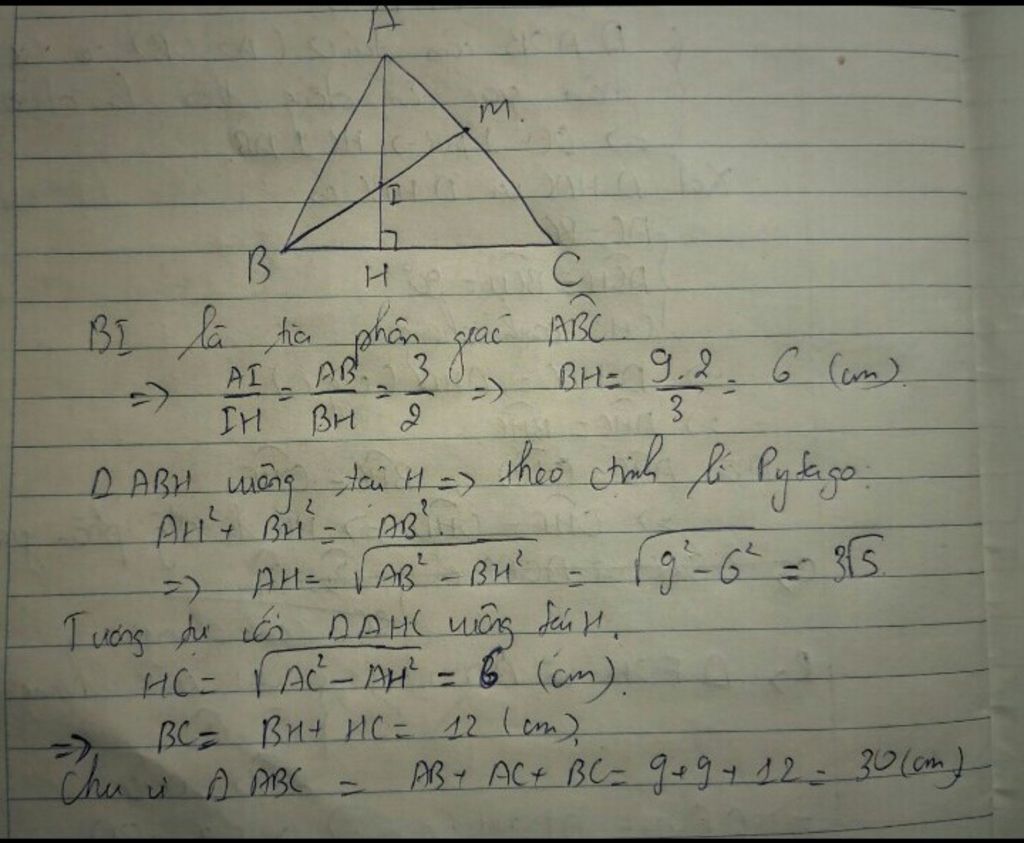 A
M.
I
B H C
BI là tia phân giác \widehat{ABC}
=> AI/IH = AB/BH = 3/2 => BH = 9.2/3 = 6 (cm).
Δ ABH vuông tại H => theo định lí Pytago:
AH² + BH² = AB².
=> AH = √(AB² - BH²) = √(9² - 6²) = 3√5
Tương tự với Δ AHC vuông tại H.
HC = √(AC² - AH²) = 6 (cm).
=> BC = BH + HC = 12 (cm).
Chu vi Δ ABC = AB + AC + BC = 9 + 9 + 12 = 30 (cm)